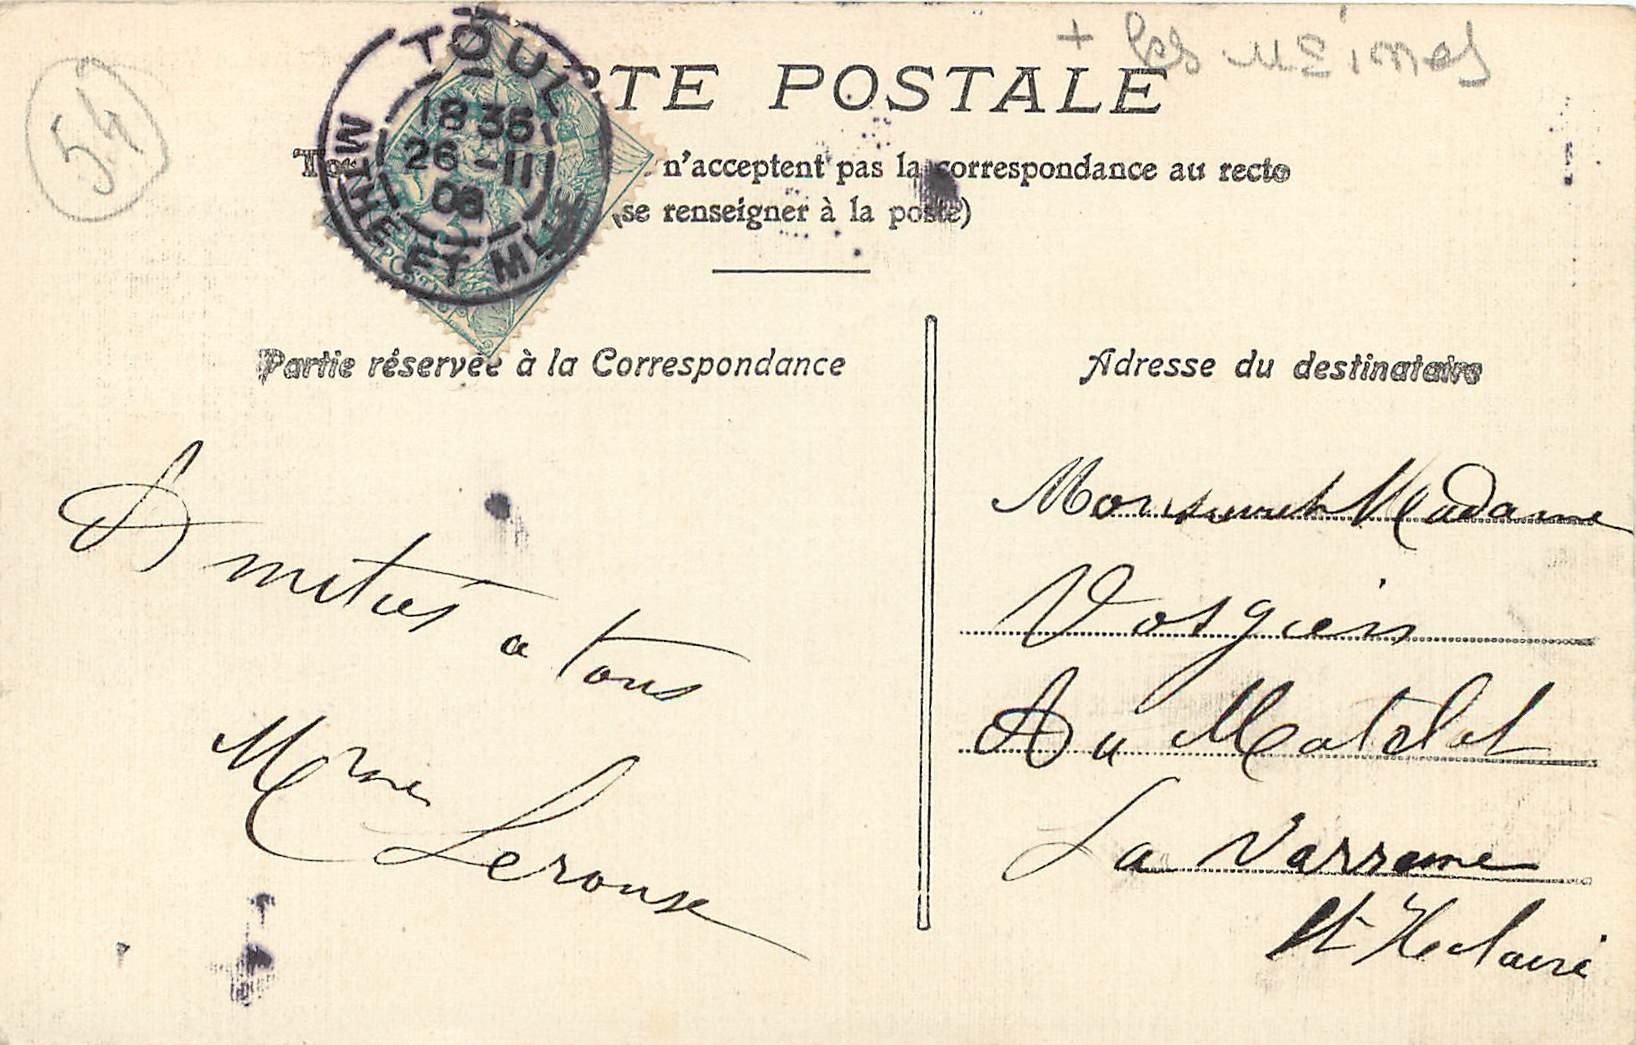 54
+ les MEimes
TE POSTALE
n'acceptent pas la correspondance au recto
(se renseigner à la poste)
TOUL
18 35
26 -11
06
MTHE ET MLLE
Partie réservée à la Correspondance
Amitiés
a tous
Mme Lerouse
Adresse du destinataire
Monsieur et Madame
Vosgien
Au Matelot
La Varenne
St Helaire